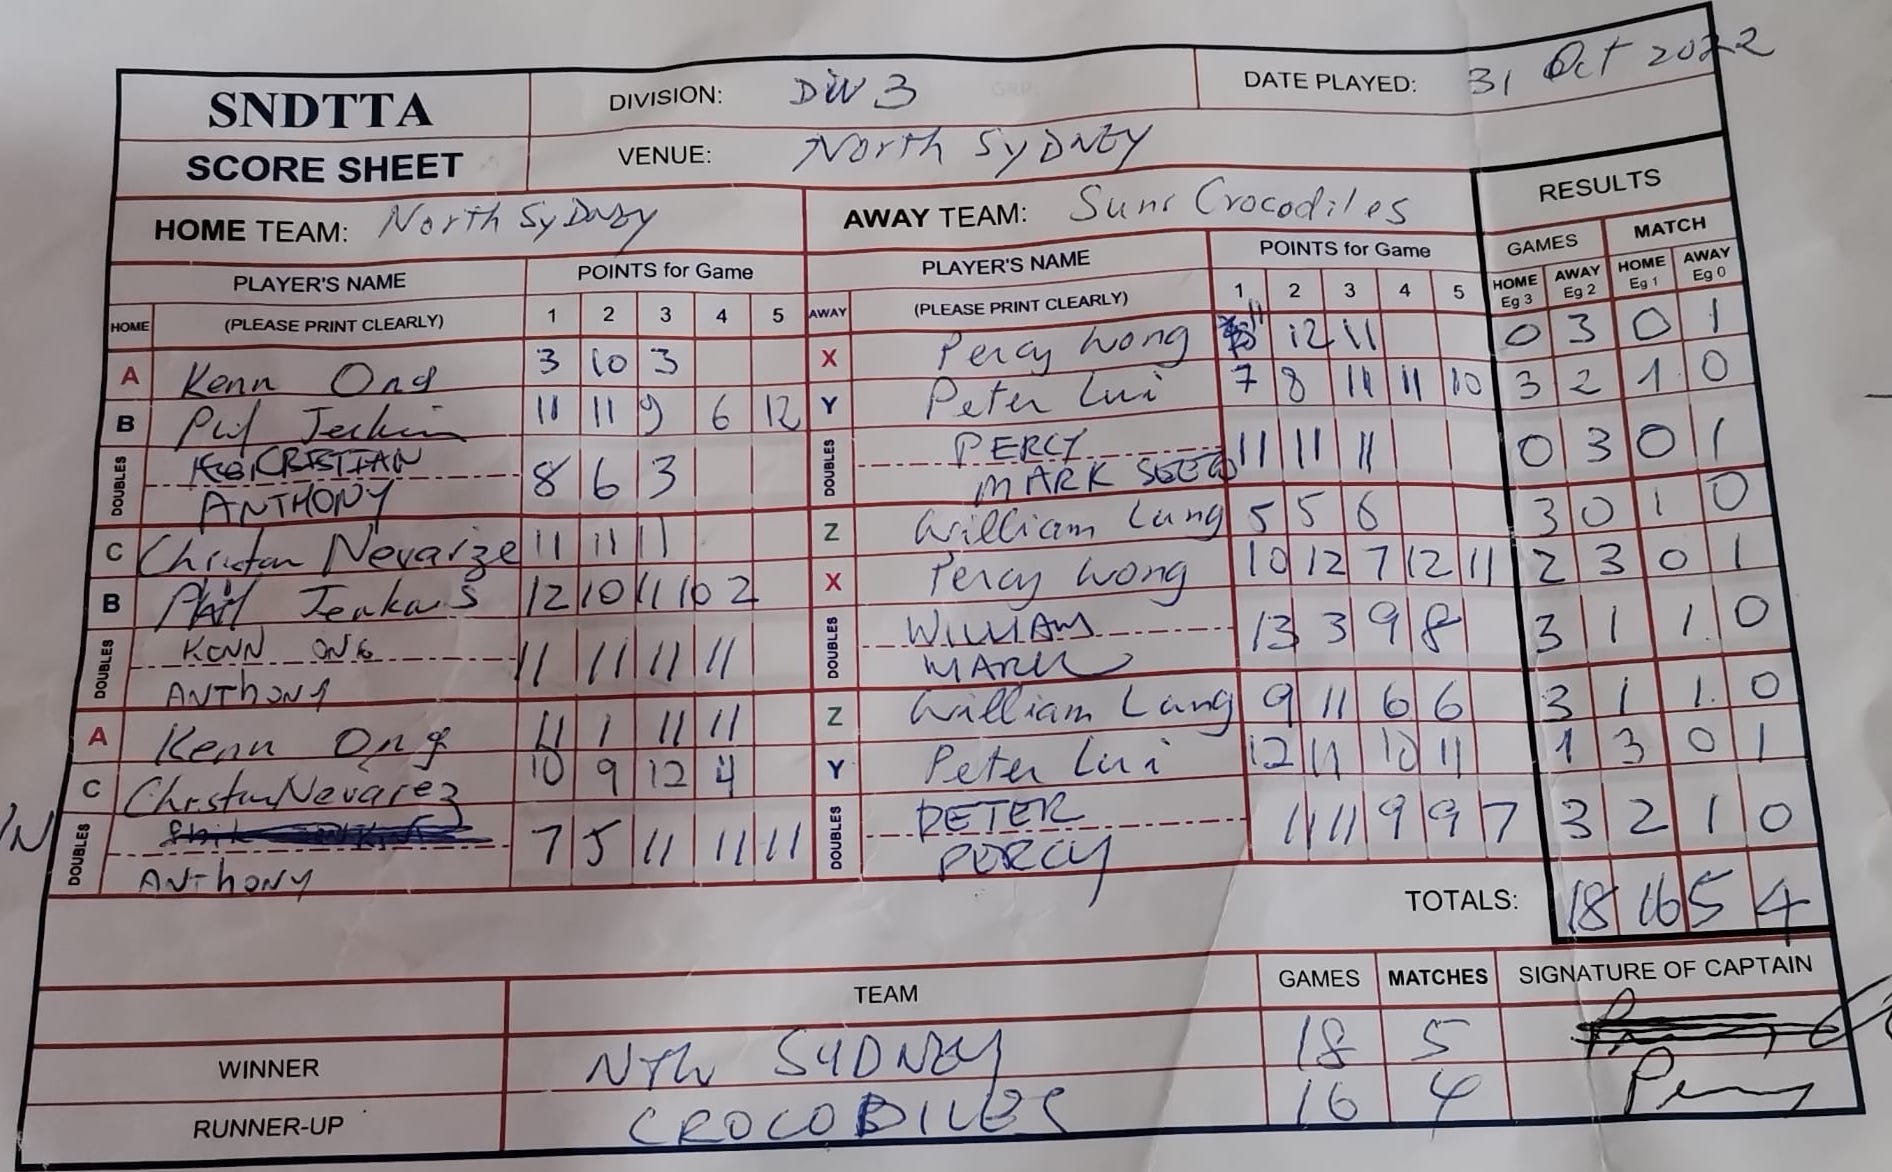 SNDTTA DIVISION: Div 3 GRP DATE PLAYED: 31 Oct 2022
SCORE SHEET VENUE: North SyDNEY
HOME TEAM: North SyDney AWAY TEAM: Suns Crocodiles RESULTS
PLAYER'S NAME POINTS for Game PLAYER'S NAME POINTS for Game GAMES MATCH
HOME (PLEASE PRINT CLEARLY) 1 2 3 4 5 AWAY (PLEASE PRINT CLEARLY) 1 2 3 4 5 HOME Eg 3 AWAY Eg 2 HOME Eg 1 AWAY Eg 0
A Kenn Ong 3 10 3 X Percy Wong 11 12 11 0 3 0 1
B Phil 11 11 9 6 12 Y Peter Lui 7 8 11 11 10 3 2 1 0
DOUBLES CRISTIAN 8 6 3 DOUBLES PERCY 11 11 11 0 3 0 1
ANTHONY MARK
C Christian Nevarze 11 11 11 Z William Lung 5 5 6 3 0 1 0
B Phil Jenkins 12 10 11 10 2 X Percy Wong 10 12 7 12 11 2 3 0 1
DOUBLES KENN ONG 11 11 11 11 DOUBLES WILLIAM 13 3 9 8 3 1 1 0
ANThONY MARK
A Kenn Ong 11 1 11 11 Z William Lung 9 11 6 6 3 1 1 0
C Christian Nevarez 10 9 12 4 Y Peter Lui 12 11 10 11 1 3 0 1
DOUBLES 7 5 11 11 11 DOUBLES PETER 11 11 9 9 7 3 2 1 0
ANThONY PERCY
TOTALS: 18 16 5 4
TEAM GAMES MATCHES SIGNATURE OF CAPTAIN
WINNER NTH SYDNEY 18 5
RUNNER-UP CROCODILES 16 4